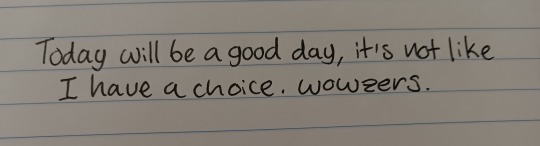 Today will be a good day, it's not like
I have a choice. wowzers.